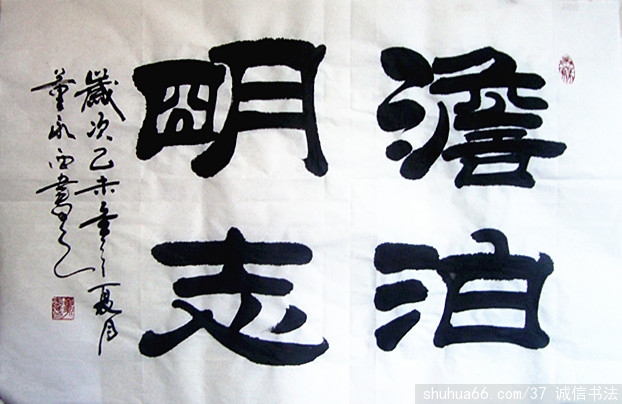 澹泊
明志
歲次乙未年之夏月
董永西書之
shuhua66.com/37 诚信书法